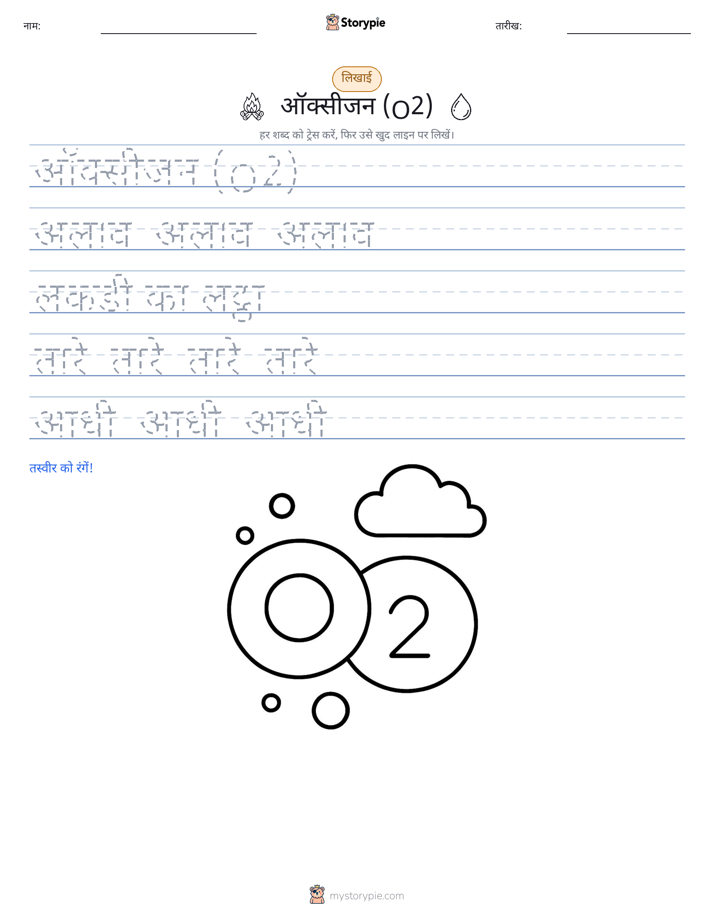 नाम:
Storypie
तारीख:
लिखाई
ऑक्सीजन (O2)
हर शब्द को ट्रेस करें, फिर उसे खुद लाइन पर लिखें।
ऑक्सीजन (O2)
अलाव अलाव अलाव
लकड़ी का लट्ठा
तारे तारे तारे तारे
आधी आधी आधी
तस्वीर को रंगें!
O 2
mystorypie.com